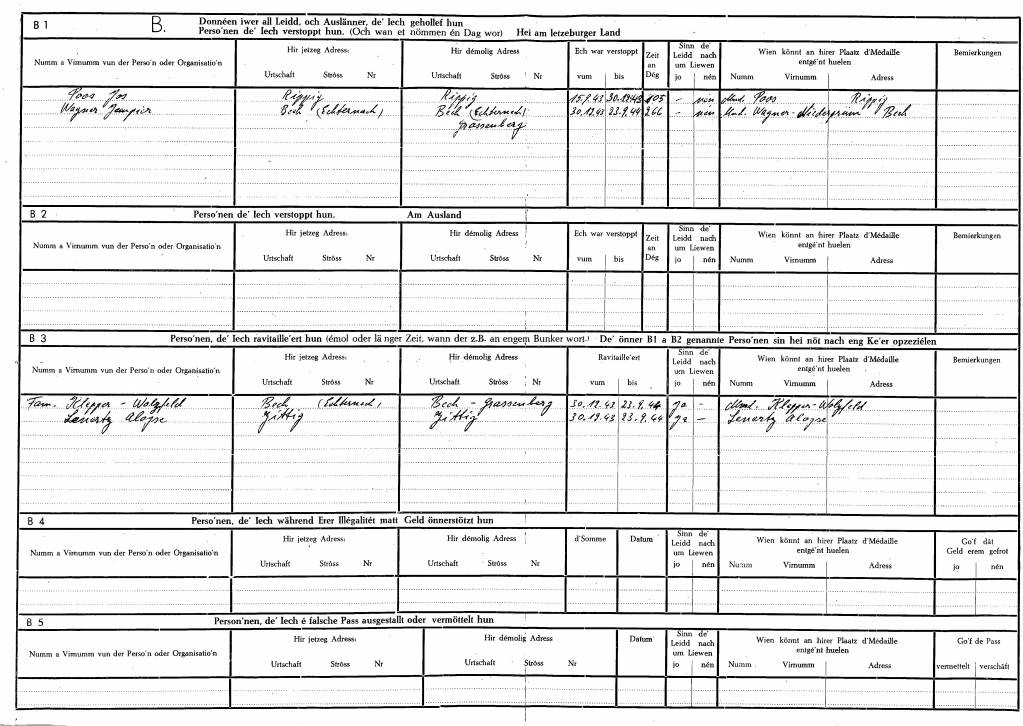 B 1 B. Donnéen iwer all Leidd, och Auslänner, de' Iech gehollef hun
Perso'nen de' Iech verstoppt hun. (Och wan et nömmen én Dag wor) Hei am letzeburger Land
Numm a Virnumm vun der Perso'n oder Organisatio'n Hir jetzeg Adress: Hir démolig Adress Ech war verstoppt Zeit an Dég Sinn de' Leidd nach um Liewen Wien könnt an hirer Plaatz d'Médaille entgé'nt huelen Bemierkungen
Urtschaft Ströss Nr Urtschaft Ströss Nr vum bis jo nén Numm Virnumm Adress
Poos Jos Rippig Rippig 15.9.43 30.12.43 105 - nein Mad. Poos Rippig
Wagner Jempier Bech (Echternach) Bech (Echternach) 30.12.43 23.9.44 266 - nein Mad. Wagner-Niederprum Bech
Grassenberg
B 2 Perso'nen de' Iech verstoppt hun. Am Ausland
Numm a Virnumm vun der Perso'n oder Organisatio'n Hir jetzeg Adress: Hir démolig Adress Ech war verstoppt Zeit an Dég Sinn de' Leidd nach um Liewen Wien könnt an hirer Plaatz d'Médaille entgé'nt huelen Bemierkungen
Urtschaft Ströss Nr Urtschaft Ströss Nr vum bis jo nén Numm Virnumm Adress
B 3 Perso'nen, de' Iech ravitaille'ert hun (émol oder länger Zeit, wann der z.B. an engem Bunker wort.) De' önner B1 a B2 genannte Perso'nen sin hei nöt nach eng Ke'er opzeziélen
Numm a Virnumm vun der Perso'n oder Organisatio'n Hir jetzeg Adress: Hir démolig Adress Ravitaille'ert Sinn de' Leidd nach um Liewen Wien könnt an hirer Plaatz d'Médaille entgé'nt huelen Bemierkungen
Urtschaft Ströss Nr Urtschaft Ströss Nr vum bis jo nén Numm Virnumm Adress
Fam. Klepper - Wolzfeld Bech (Echternach) Bech - Grassenberg 30.12.43 23.9.44 ja - Mad. Klepper-Wolzfeld
Lenertz Aloyse Zittig Zittig 30.12.43 23.9.44 ja - Lenertz Aloyse
B 4 Perso'nen, de' Iech während Erer Illégalitét matt Geld önnerstötzt hun
Numm a Virnumm vun der Perso'n oder Organisatio'n Hir jetzeg Adress: Hir démolig Adress d'Somme Datum Sinn de' Leidd nach um Liewen Wien könnt an hirer Plaatz d'Médaille entgé'nt huelen Go'f dât Geld erem gefrot
Urtschaft Ströss Nr Urtschaft Ströss Nr jo nén Numm Virnumm Adress jo nén
B 5 Perso'nen, de' Iech é falsche Pass ausgestallt oder vermöttelt hun
Numm a Virnumm vun der Perso'n oder Organisatio'n Hir jetzeg Adress: Hir démolig Adress Datum Sinn de' Leidd nach um Liewen Wien könnt an hirer Plaatz d'Médaille entgé'nt huelen Go'f de Pass
Urtschaft Ströss Nr Urtschaft Ströss Nr jo nén Numm Virnumm Adress vermettelt verschäft